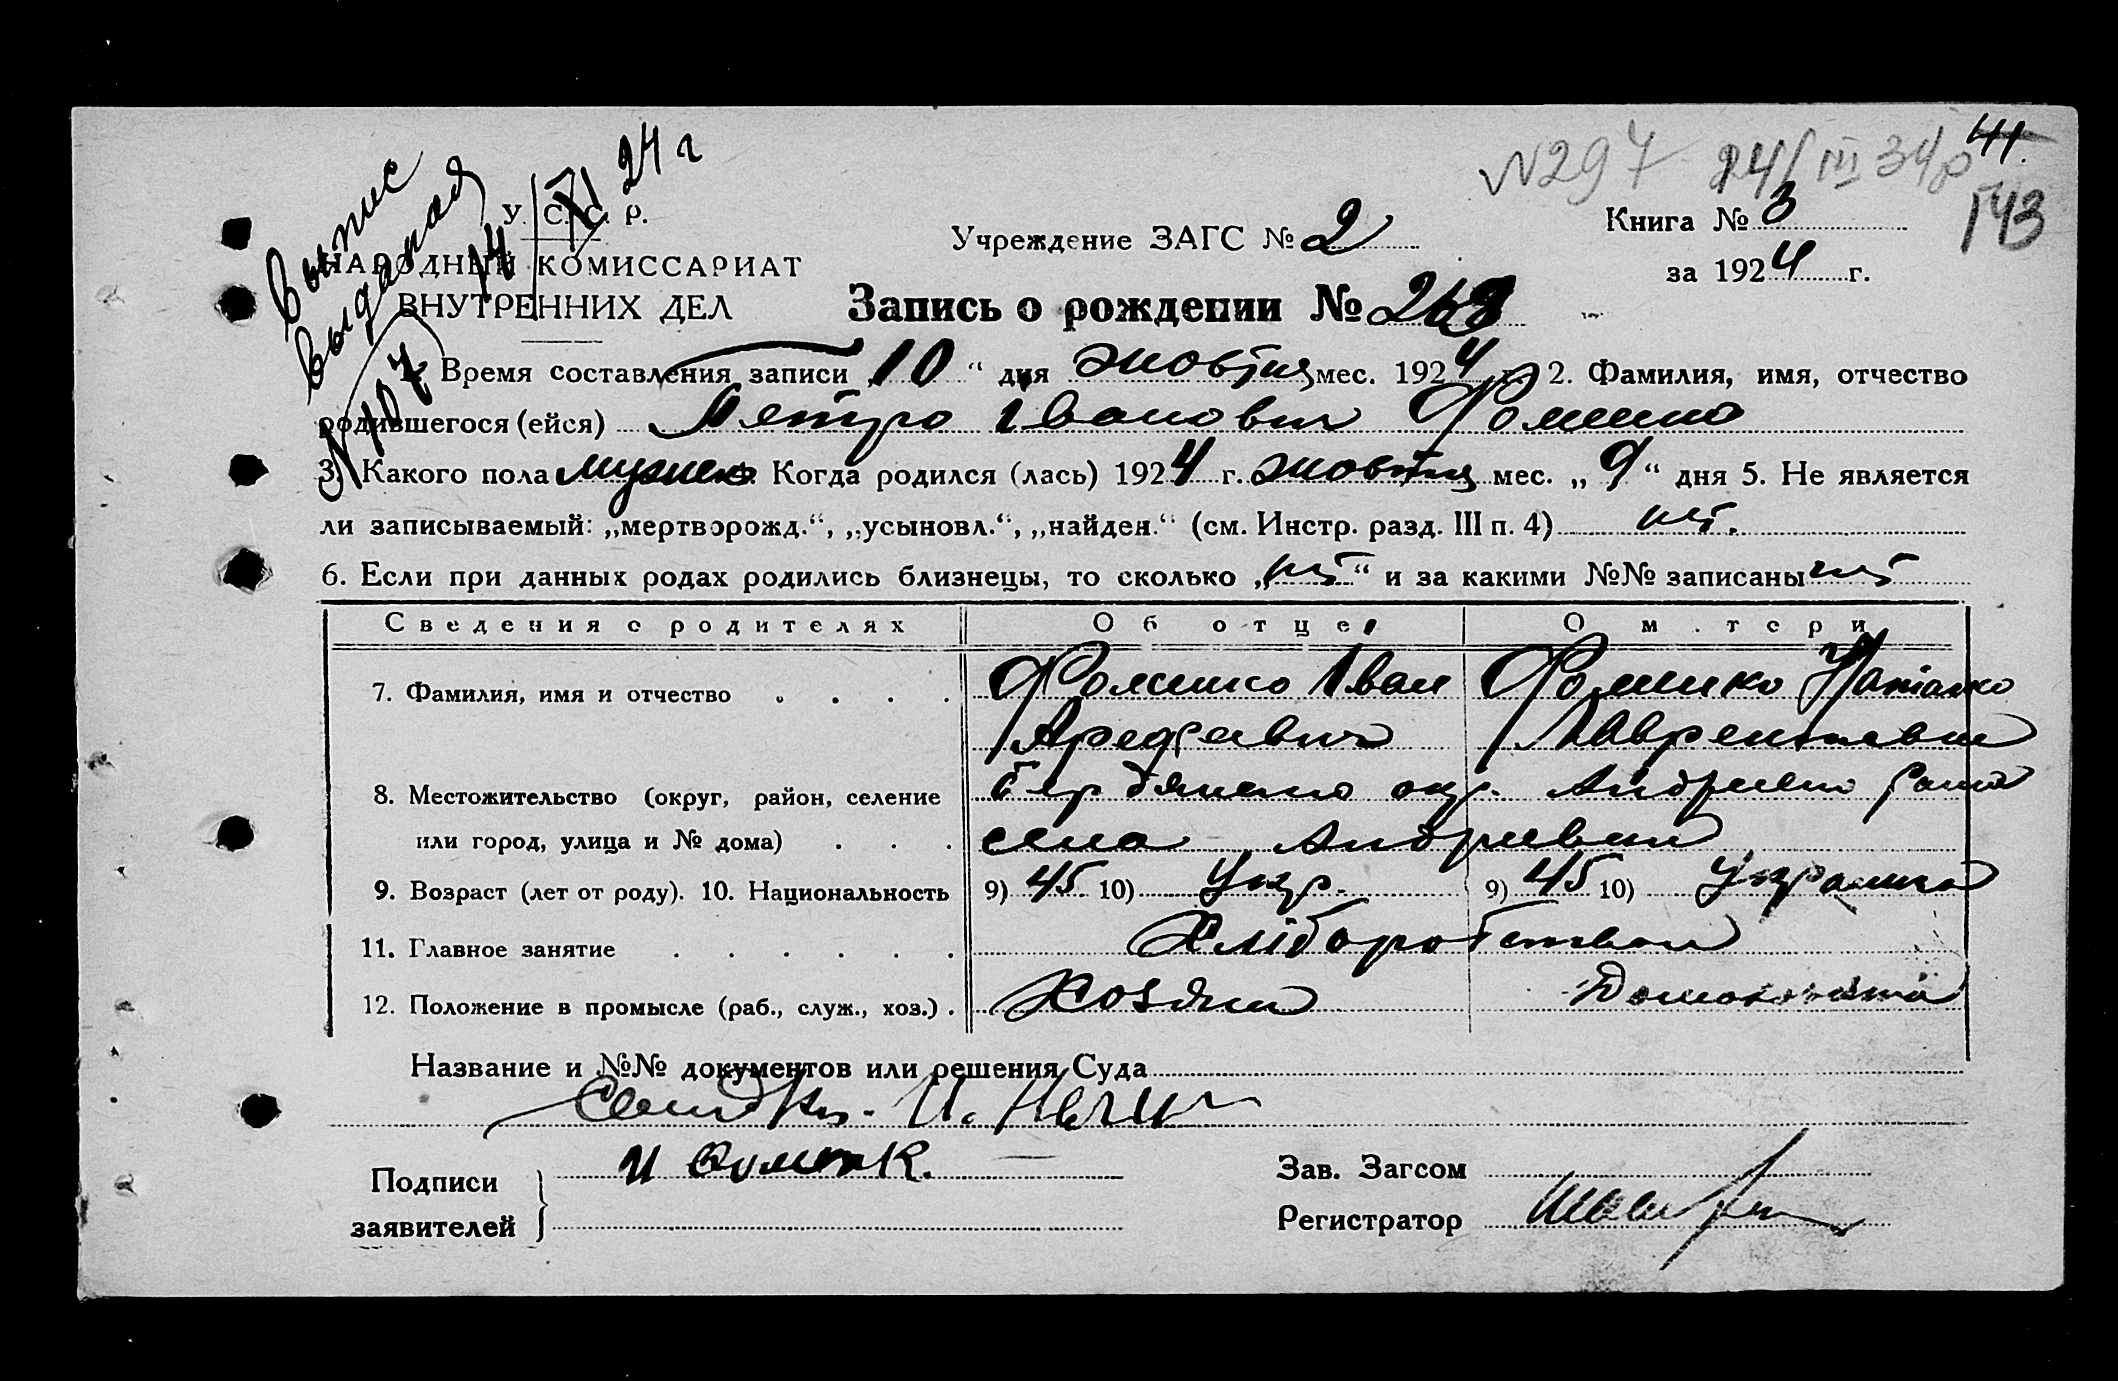 N297 24/III 34р 41.
143
Выпис
выданая
14/XI 24 г
N 107
У. С. С. Р.
НАРОДНЫЙ КОМИССАРИАТ
ВНУТРЕННИХ ДЕЛ
Учреждение ЗАГС № 2
Книга № 3
за 1924 г.
Запись о рождении № 268
1. Время составления записи „10“ дня жовтня мес. 1924 г. 2. Фамилия, имя, отчество
родившегося (ейся) Петро Іванович Фоменко
3. Какого пола мужеск. Когда родился (лась) 1924 г. жовтня мес. „9“ дня 5. Не является
ли записываемый: „мертворожд.“, „усыновл.“, „найден.“ (см. Инстр. разд. III п. 4) ні.
6. Если при данных родах родились близнецы, то сколько „ні“ и за какими №№ записаны ні
Сведения о родителях Об отце О матери
7. Фамилия, имя и отчество Фоменко Іван Фоменко Наталка
Лаврентьевна
8. Местожительство (округ, район, селение Бердянсько окр. Андріевско району
или город, улица и № дома) села Андріевки
9. Возраст (лет от роду). 10. Национальность 9) 45 10) Укр. 9) 45 10) Українка
11. Главное занятие Хліборобством
12. Положение в промысле (раб., служ., хоз.) Хозяин
Название и №№ документов или решения Суда
Подписи
заявителей
Зав. Загсом
Регистратор